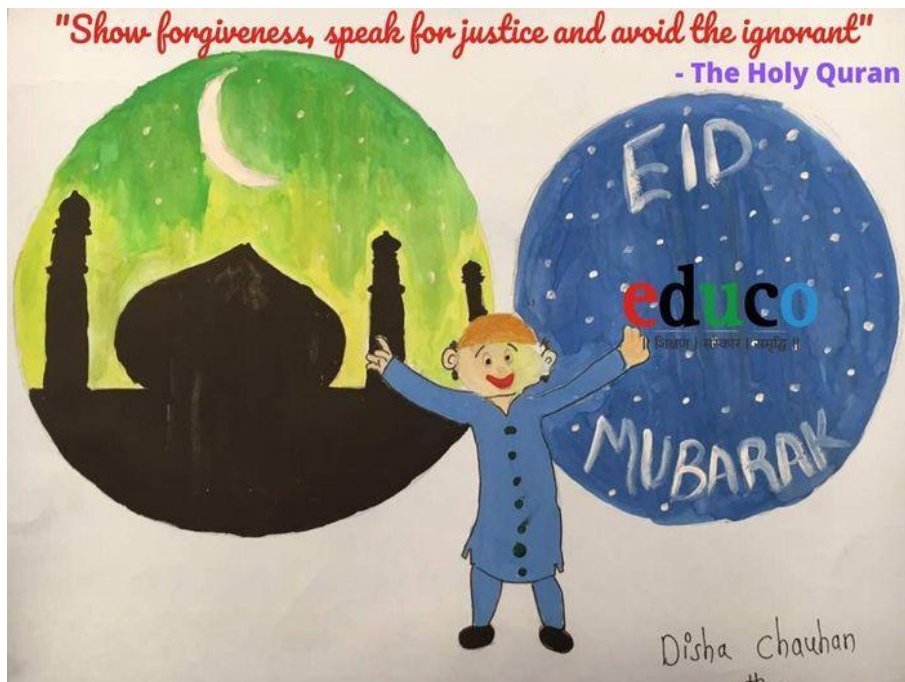 "Show forgiveness, speak for justice and avoid the ignorant"
- The Holy Quran
EID
educo
|| शिक्षण | संस्कार | समृद्धि ||
MUBARAK
Disha Chauhan
th